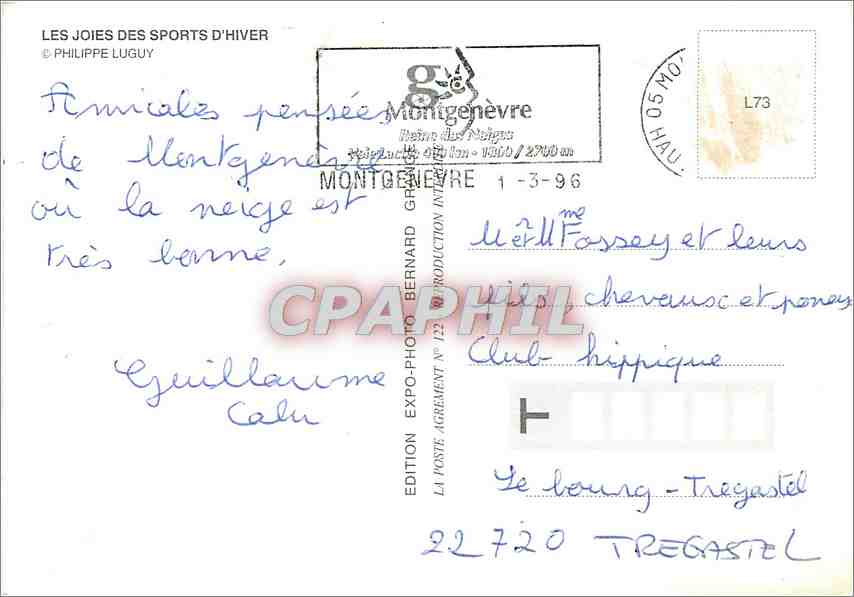 LES JOIES DES SPORTS D'HIVER
© PHILIPPE LUGUY
Amicales pensées
de Montgenèvre
où la neige est
très bonne.
Guillaume
Calu
g
Montgenèvre
Reine des Neiges
400 km - 1800 / 2700 m
MONTGENEVRE 1 -3-96
05 MO
HAU
L73
EDITION EXPO-PHOTO BERNARD GRANGE
LA POSTE AGREMENT N° 122 REPRODUCTION INTERDITE
Mr et Mme Fossey et leurs
fils, chevaux et poneys
Club hippique
T
Le bourg - Tregastel
22 720 TREGASTEL
CPAPHIL